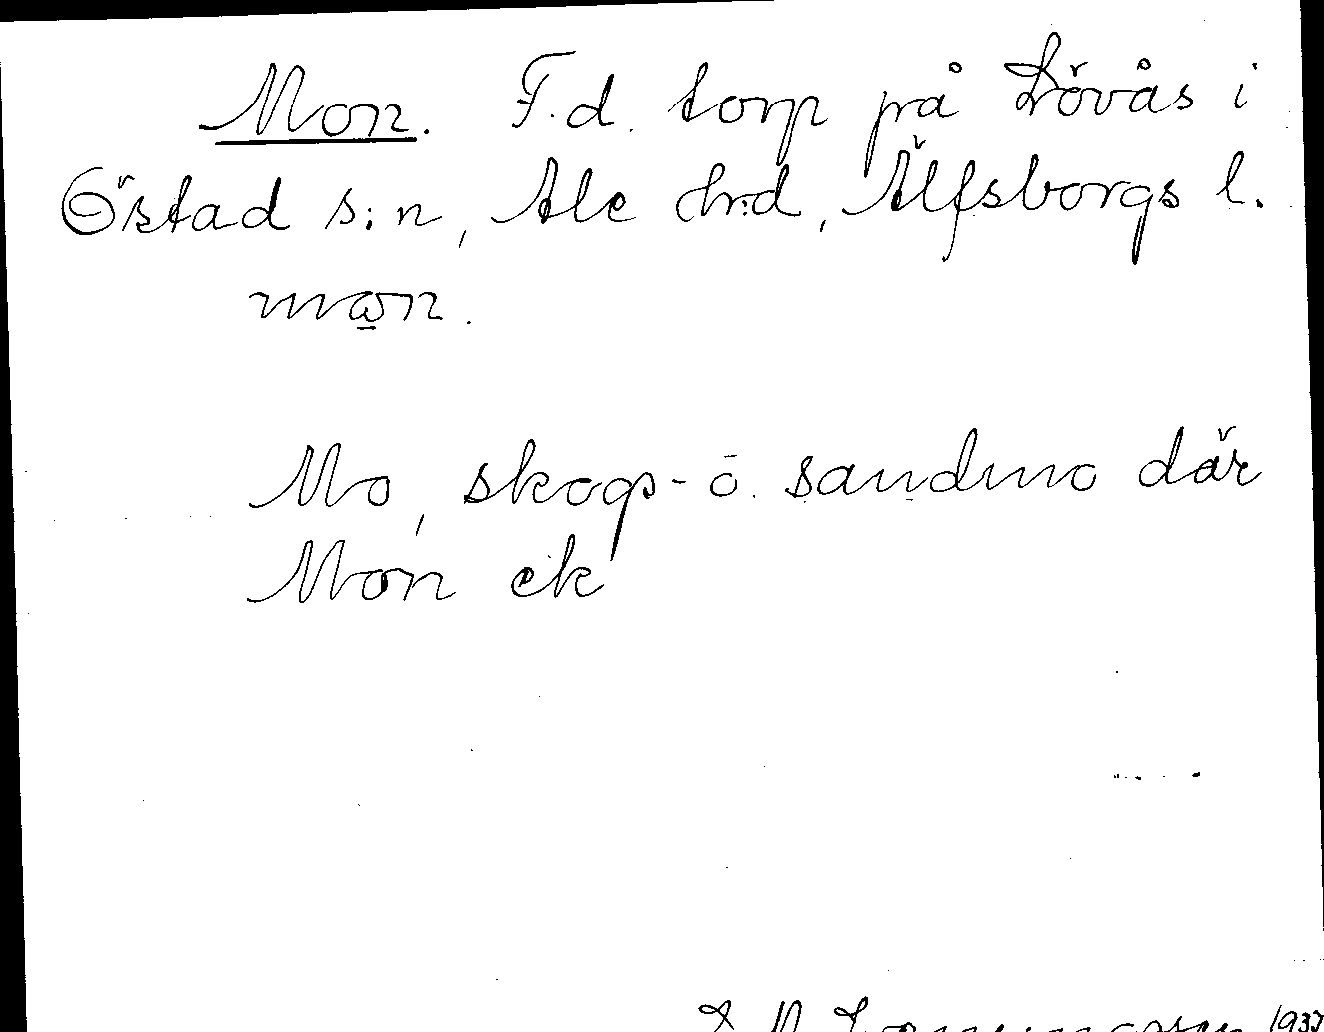 Mon. F.d. torp på Lövås i
Östad s:n, Ale hrd, Älfsborgs l.
mon.
Mo, skogs- o. sandmo där
Mon ek
1937